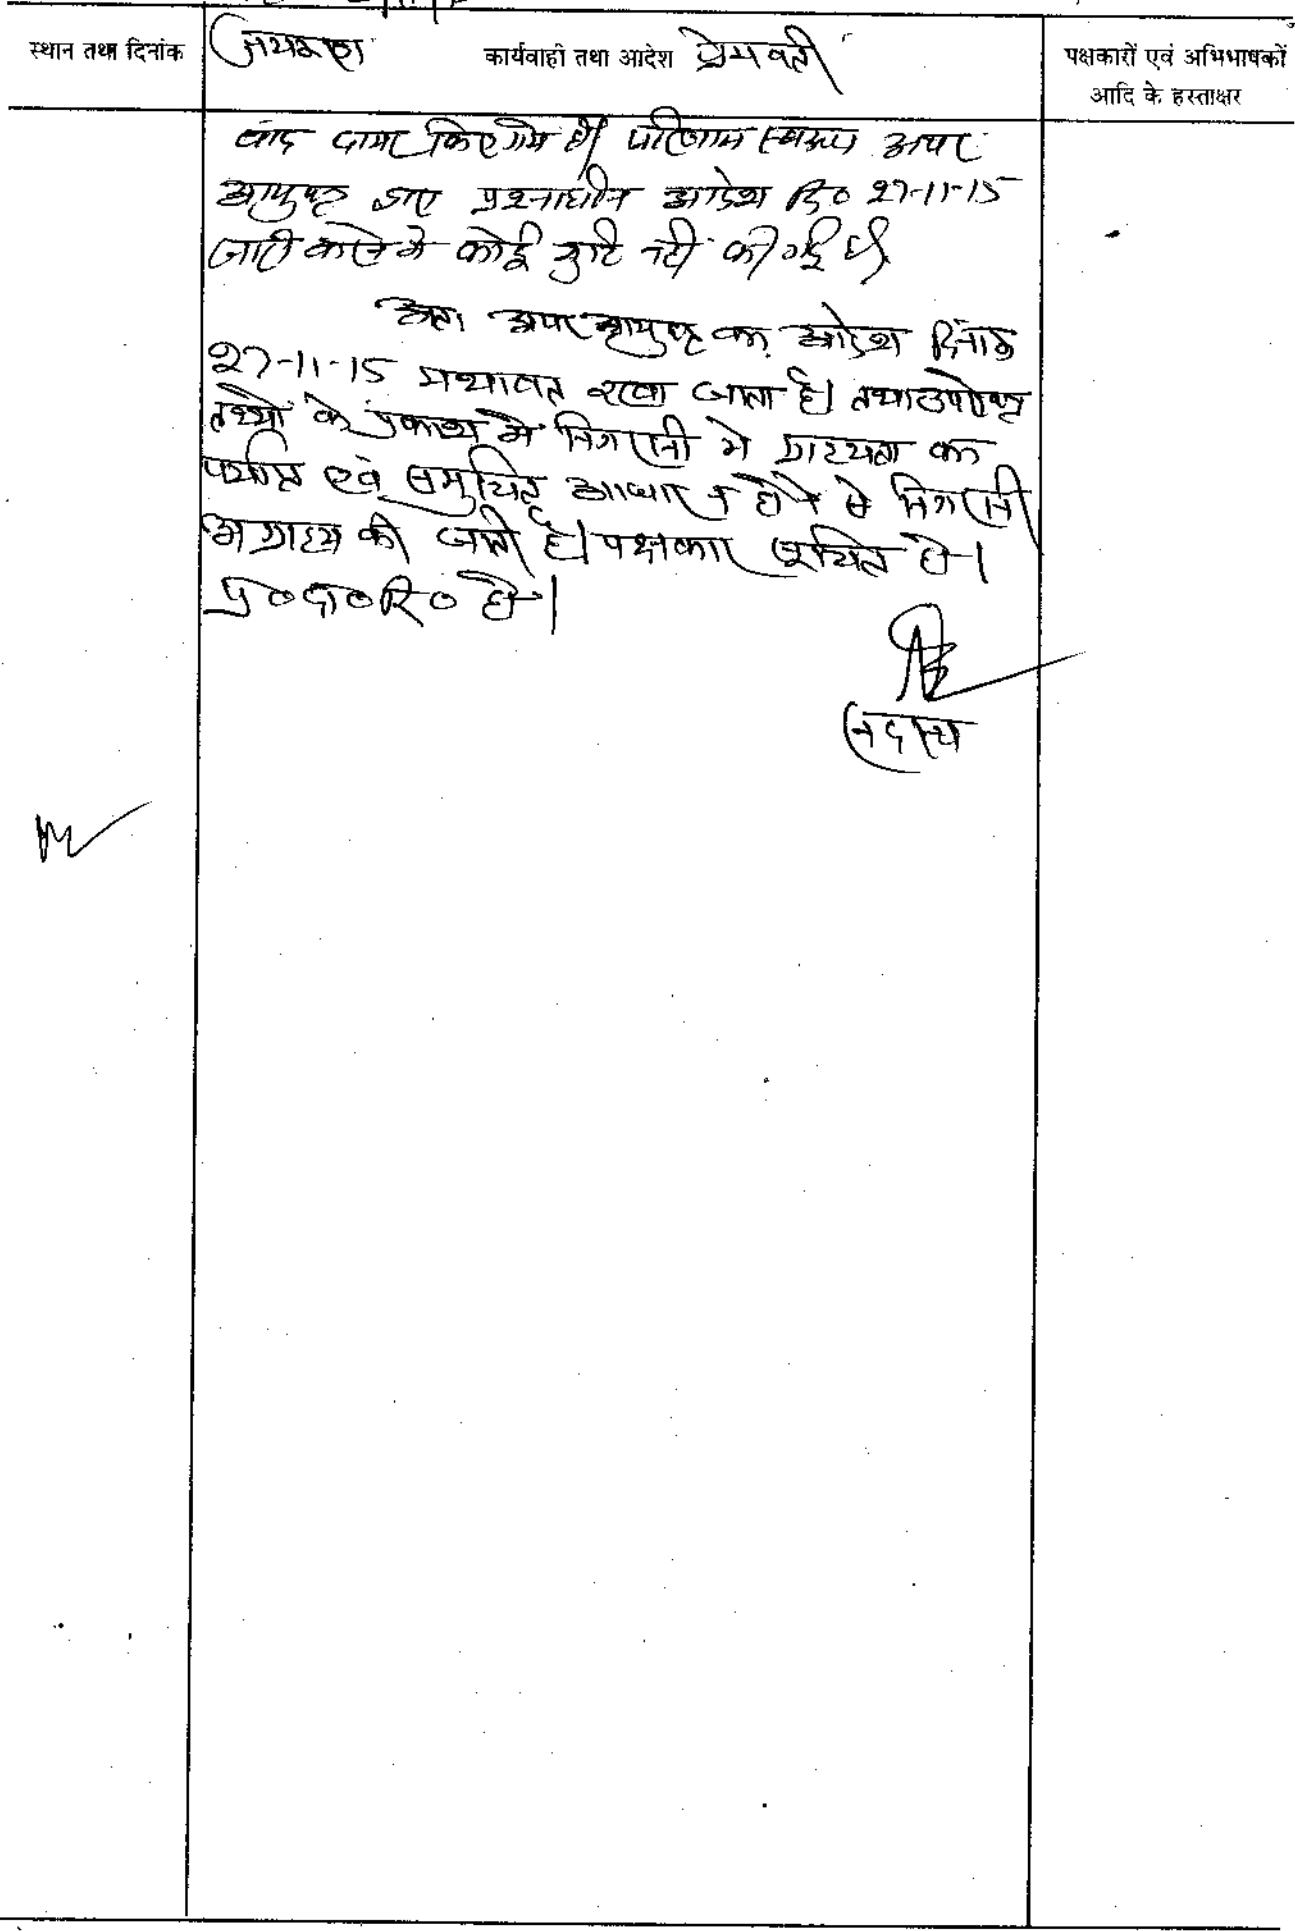 स्थान तथा दिनांक
कार्यवाही तथा आदेश प्रेमवती
पक्षकारों एवं अभिभाषकों
आदि के हस्ताक्षर
वाद दायर किए गये है। परिणाम स्वरूप अपर
आयुक्त द्वारा प्रश्नाधीन आदेश दि० 27-11-15
जारी करने मे कोई त्रुटि नही की गई है।
अतः अपर आयुक्त का आदेश दिनांक
27-11-15 यथावत रखा जाता है। तथा उपरोक्त
तथ्यों के प्रकाश में निगरानी मे ग्राह्यता का
पर्याप्त एवं समुचित आधार न होने से निगरानी
अग्राह्य की जाती है। पक्षकार सूचित हो।
प्र०दा०रि० हो।
सदस्य